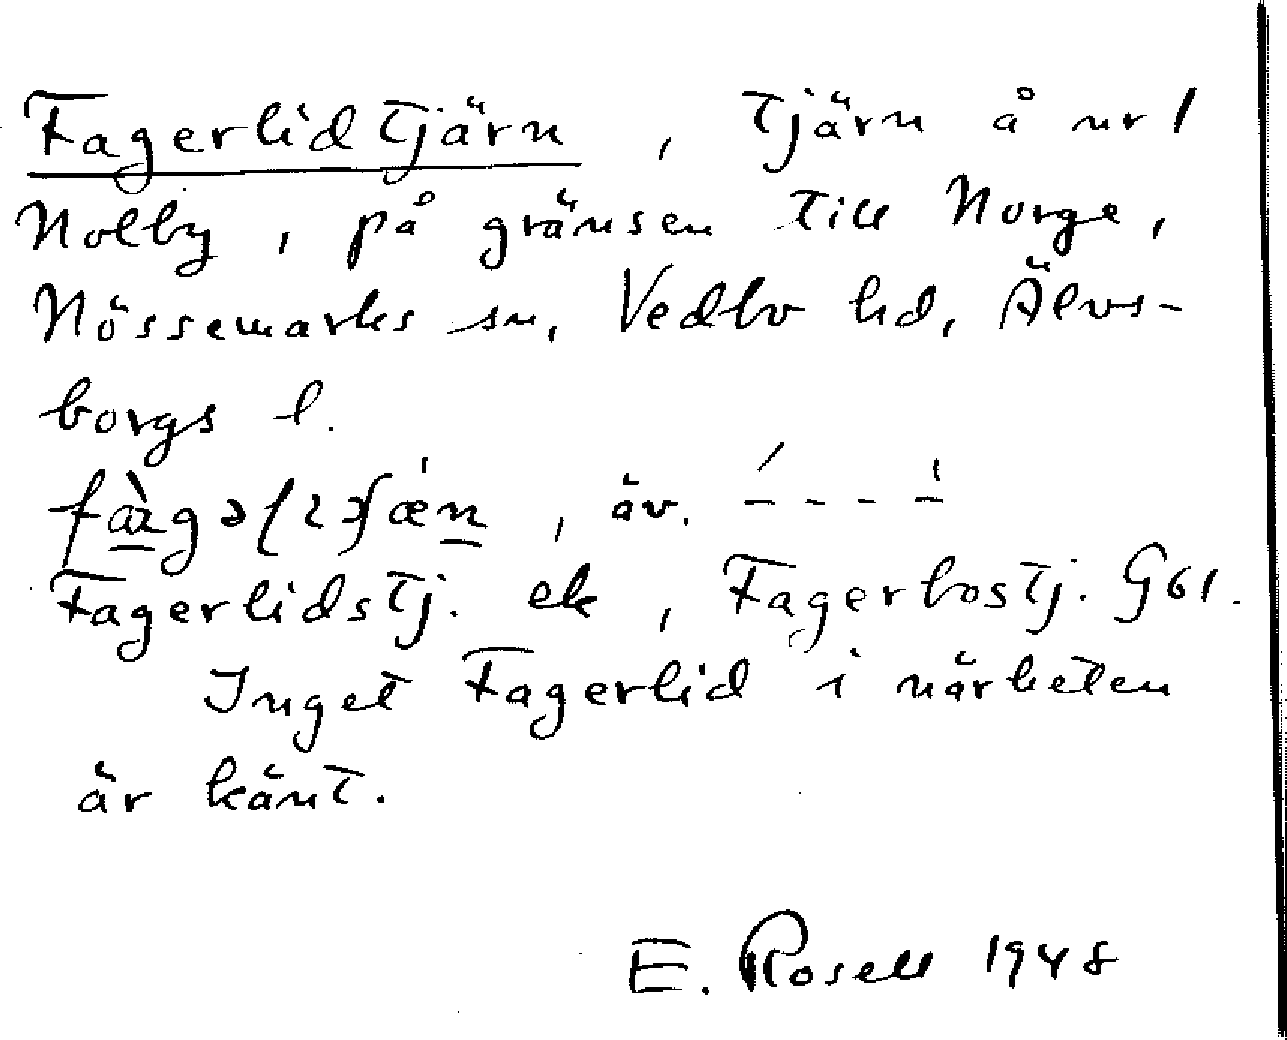 Fagerlidtjärn, Tjärn å nr 1
Nolby, på gränsen till Norge,
Nössemarks sn, Vedbo hd, Älvs-
borgs l.
, äv.
Fagerlidstj. ek, Fagerbostj. G61.
Inget Fagerlid i närheten
är känt.
E. Rosell 1948